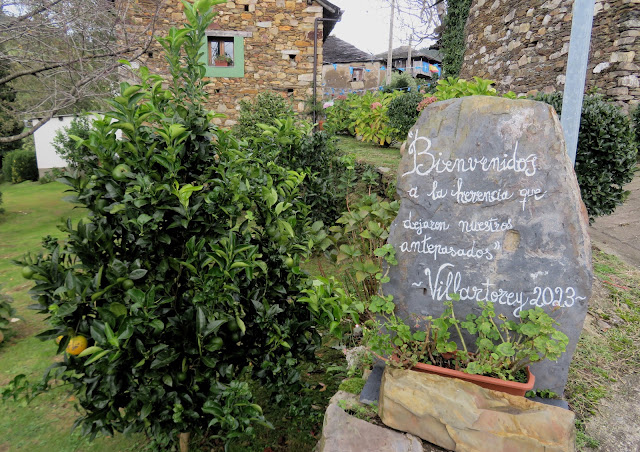 Bienvenidos
a la herencia que
dejaron nuestros
antepasados"
~Villartorey 2023~